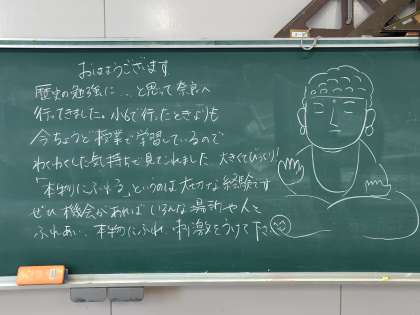 おはようございます
歴史の勉強に…と思って奈良へ
行ってきました。小6で行ったときよりも
今ちょうど授業で学習しているので
わくわくした気持ちで見てこれました 大きくてびっくり!
「本物にふれる」というのは大切な経験です
ぜひ機会があればいろんな場所や人と
ふれあい、本物にふれ、刺激をうけて下さい